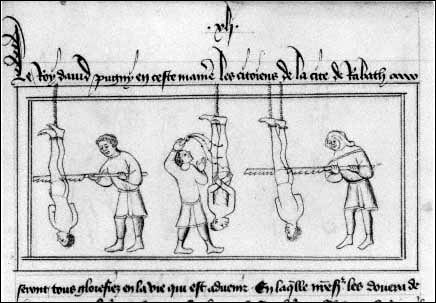 .xlj.
Le Roy david pugny en ceste maniere les citoiens de la cite de Rabath
seront tous glorefiez en la vie qui est advenir. En laqlle les